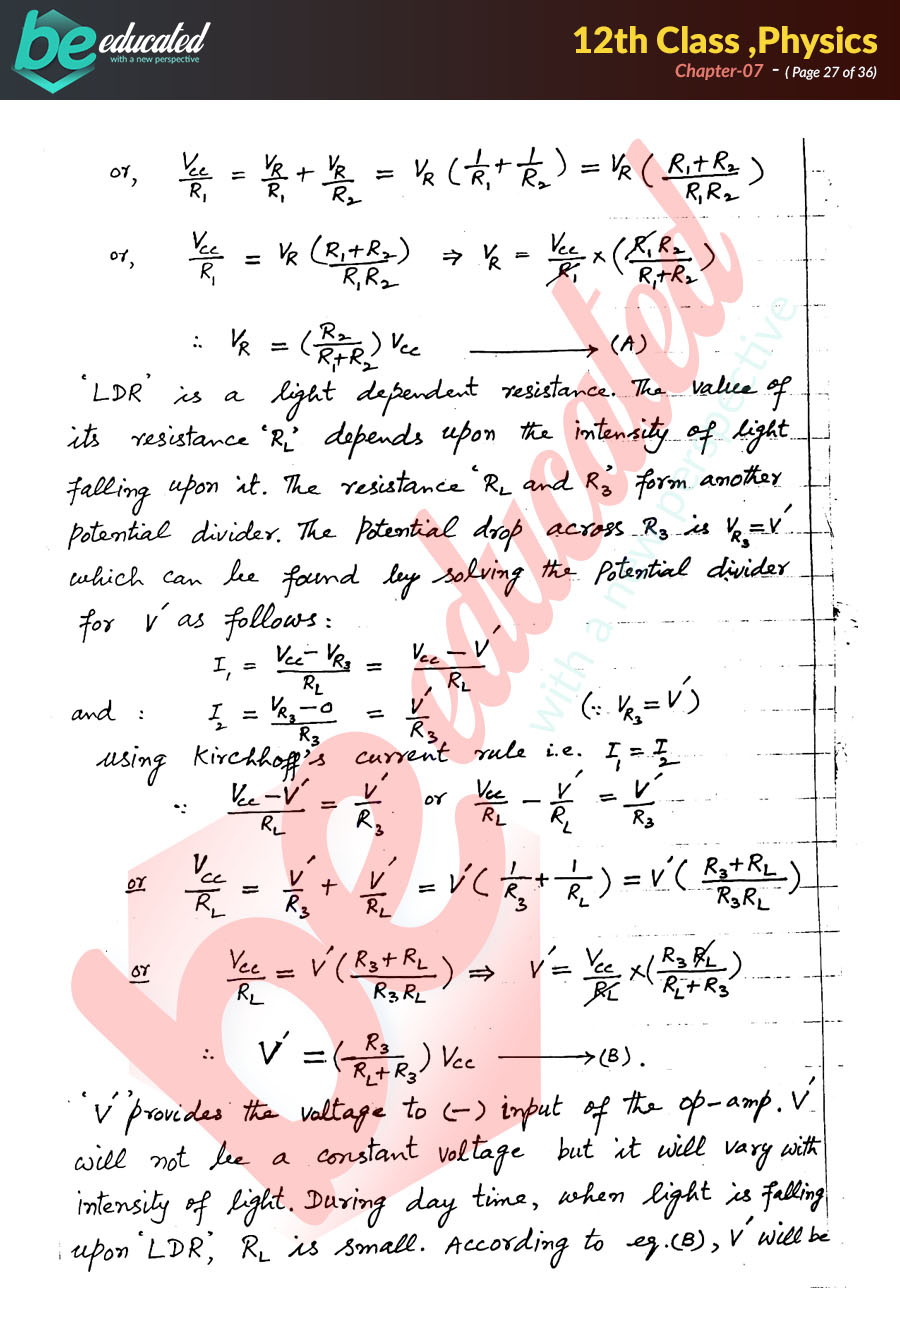 be educated
with a new perspective
12th Class ,Physics
Chapter-07 - ( Page 27 of 36)
or, Vcc/R₁ = V_R/R₁ + V_R/R₂ = V_R ( 1/R₁ + 1/R₂ ) = V_R ( R₁+R₂ / R₁R₂ )
or, Vcc/R₁ = V_R ( R₁+R₂ / R₁R₂ ) ⇒ V_R = Vcc/R₁ × ( R₁R₂ / R₁+R₂ )
∴ V_R = ( R₂ / R₁+R₂ ) Vcc ⟶ (A)
'LDR' is a light dependent resistance. The value of
its resistance 'R_L' depends upon the intensity of light
falling upon it. The resistance 'R_L and R₃' form another
potential divider. The Potential drop across R₃ is V_R₃=V′
which can be found by solving the Potential divider
for V′ as follows:
I₁ = Vcc−V_R₃ / R_L = Vcc−V′ / R_L
and : I₂ = V_R₃−0 / R₃ = V′/R₃ (∵ V_R₃=V′)
using Kirchhoff's current rule i.e. I₁=I₂
∵ Vcc−V′ / R_L = V′/R₃ or Vcc/R_L − V′/R_L = V′/R₃
or Vcc/R_L = V′/R₃ + V′/R_L = V′( 1/R₃ + 1/R_L ) = V′( R₃+R_L / R₃R_L )
or Vcc/R_L = V′( R₃+R_L / R₃R_L ) ⇒ V′= Vcc/R_L ×( R₃R_L / R_L+R₃ )
∴ V′ = ( R₃ / R_L+R₃ ) Vcc ⟶ (B).
'V′' provides the voltage to (−) input of the op-amp. V′
will not be a constant voltage but it will vary with
intensity of light. During day time, when light is falling
upon 'LDR', R_L is small. According to eq.(B), V′ will be
be educated
with a new perspective